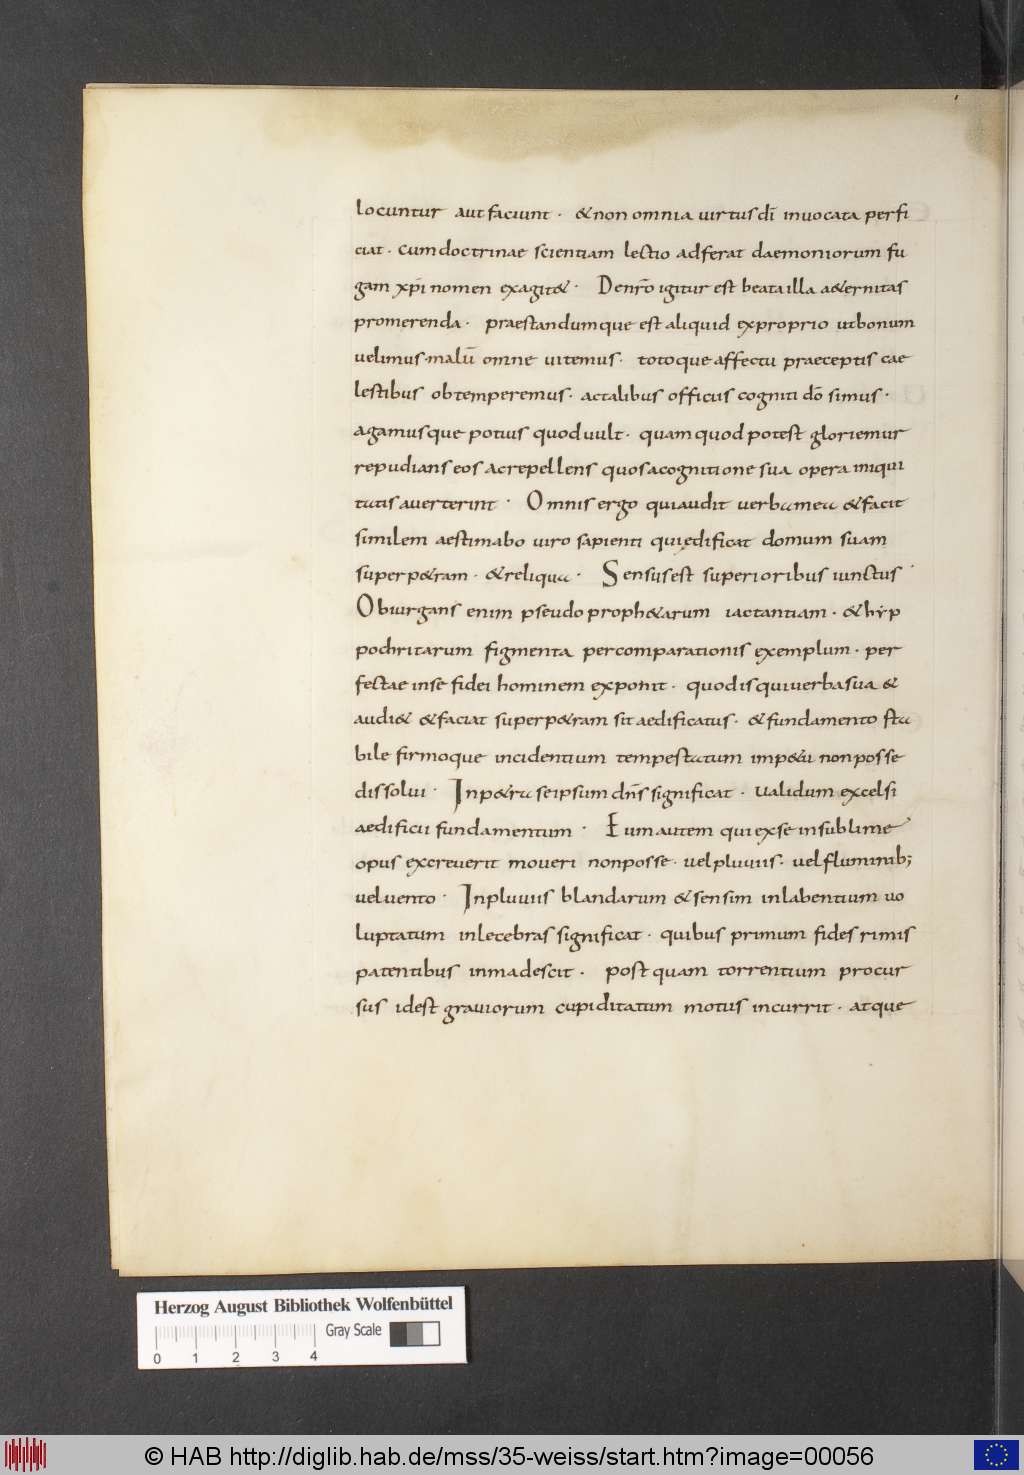 locuntur aut faciunt · & non omnia uirtus dī inuocata perfi
ciat · cum doctrinae scientiam lectio adferat daemoniorum fu
gam xp̄i nomen exagit& · De nr̄o igitur est beata illa a&ernitas
promerenda · praestandumque est aliquid ex proprio ut bonum
uelimus · malū omne uitemus · totoque affectu praeceptis cae
lestibus obtemperemus · ac talibus officiis cogniti dō simus ·
agamusque potius quod uult · quam quod potest gloriemur
repudians eos ac repellens quos a cognitione sua opera iniqui
tatis auerterint · Omnis ergo qui audit uerba mea & facit
similem aestimabo uiro sapienti qui ędificat domum suam
super p&ram · & reliqua · Sensus est superioribus iunctus ·
Obiurgans enim pseudo proph&arum iactantiam · & hẏp
pochritarum figmenta per comparationis exemplum · per
fectae in se fidei hominem exponit · quod is qui uerba sua &
audi& & faciat super p&ram sit aedificatus · & fundamento sta
bile firmoque incidentium tempestatum imp&u non posse
dissolui · In p&ra se ipsum dn̄s significat · ualidum excelsi
aedificii fundamentum · Eum autem qui ex se in sublime
opus excreuerit moueri non posse · uel pluuiis · uel fluminib;
uel uento · In pluuiis blandarum & sensim inlabentium uo
luptatum inlecebras significat · quibus primum fides rimis
patentibus inmadescit · post quam torrentium procur
sus id est grauiorum cupiditatum motus incurrit · atque
Herzog August Bibliothek Wolfenbüttel
Gray Scale
0 1 2 3 4
© HAB http://diglib.hab.de/mss/35-weiss/start.htm?image=00056